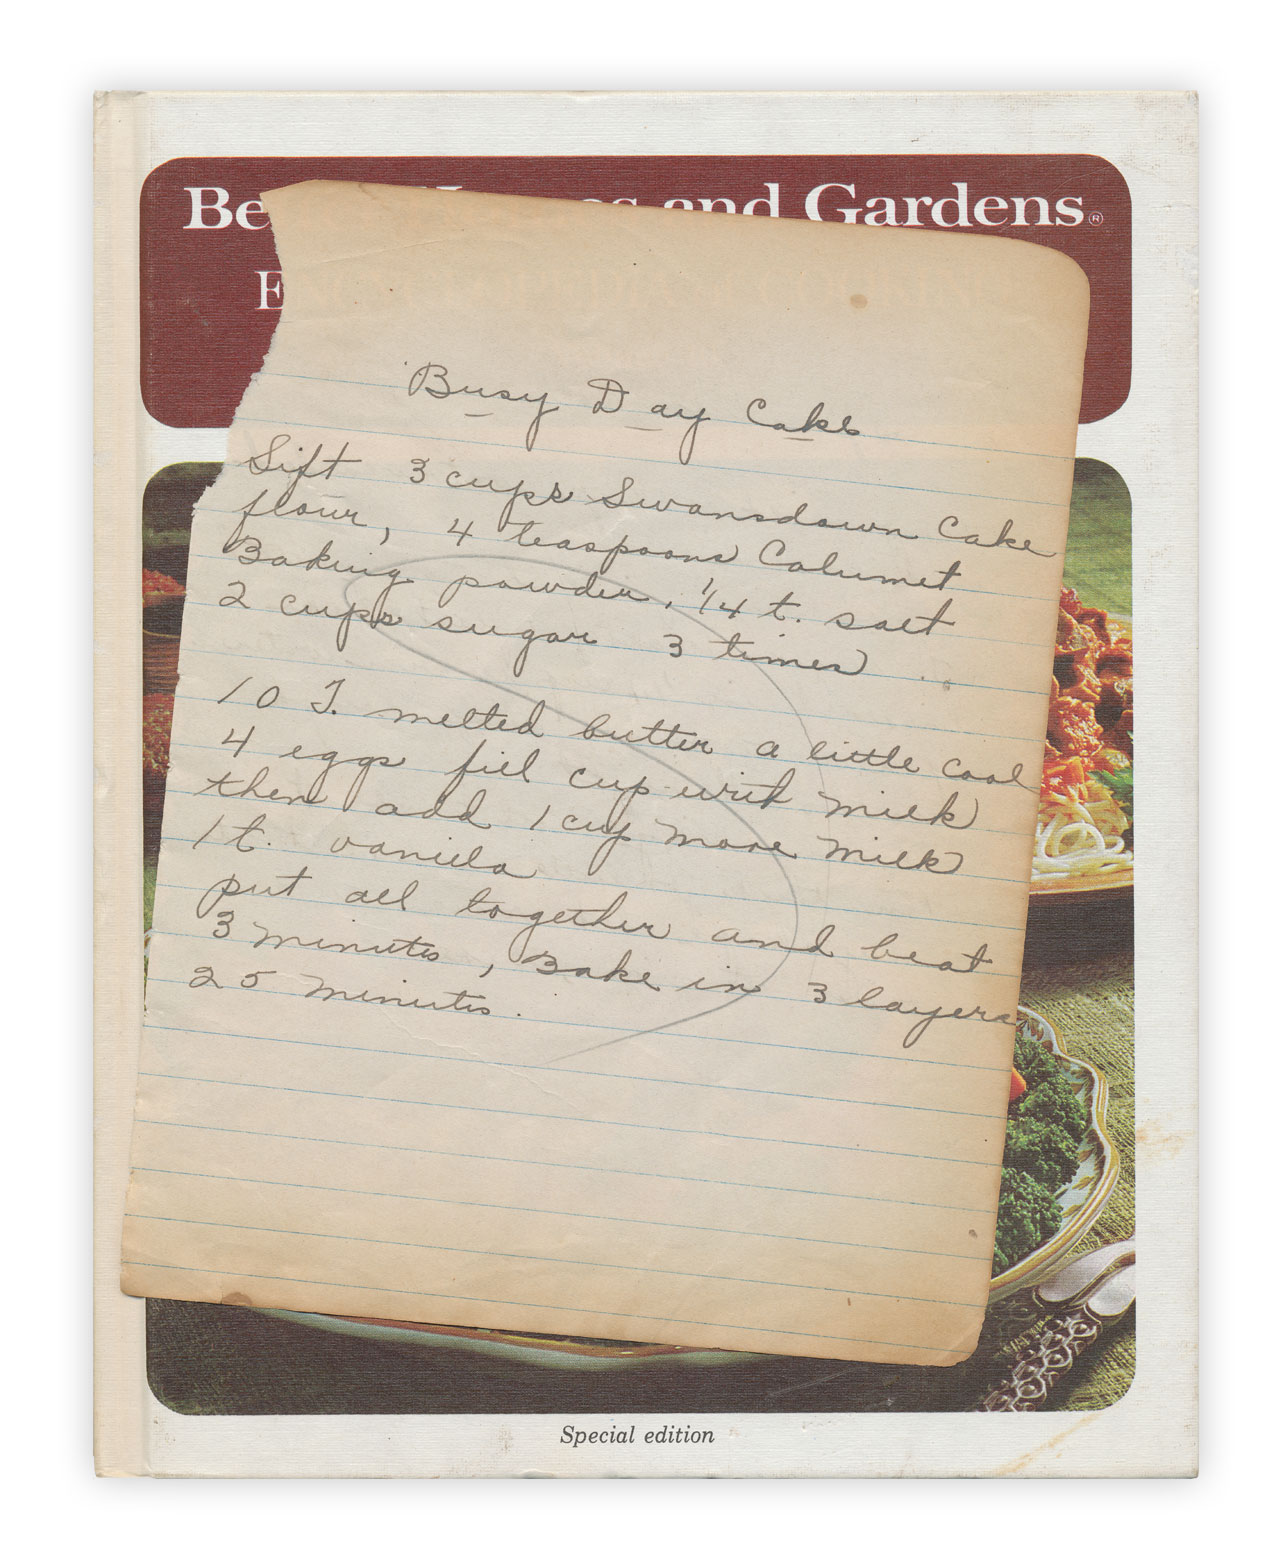 Be es and Gardens®
E
Busy Day Cake
Sift 3 cups Swansdown Cake
flour, 4 teaspoons Calumet
Baking powder, 1/4 t. salt
2 cups sugar 3 times
10 T. melted butter a little cool
4 eggs fill cup with milk
then add 1 cup more milk
1 t. vanilla
put all together and beat
3 minutes, Bake in 3 layers
25 minutes.
Special edition